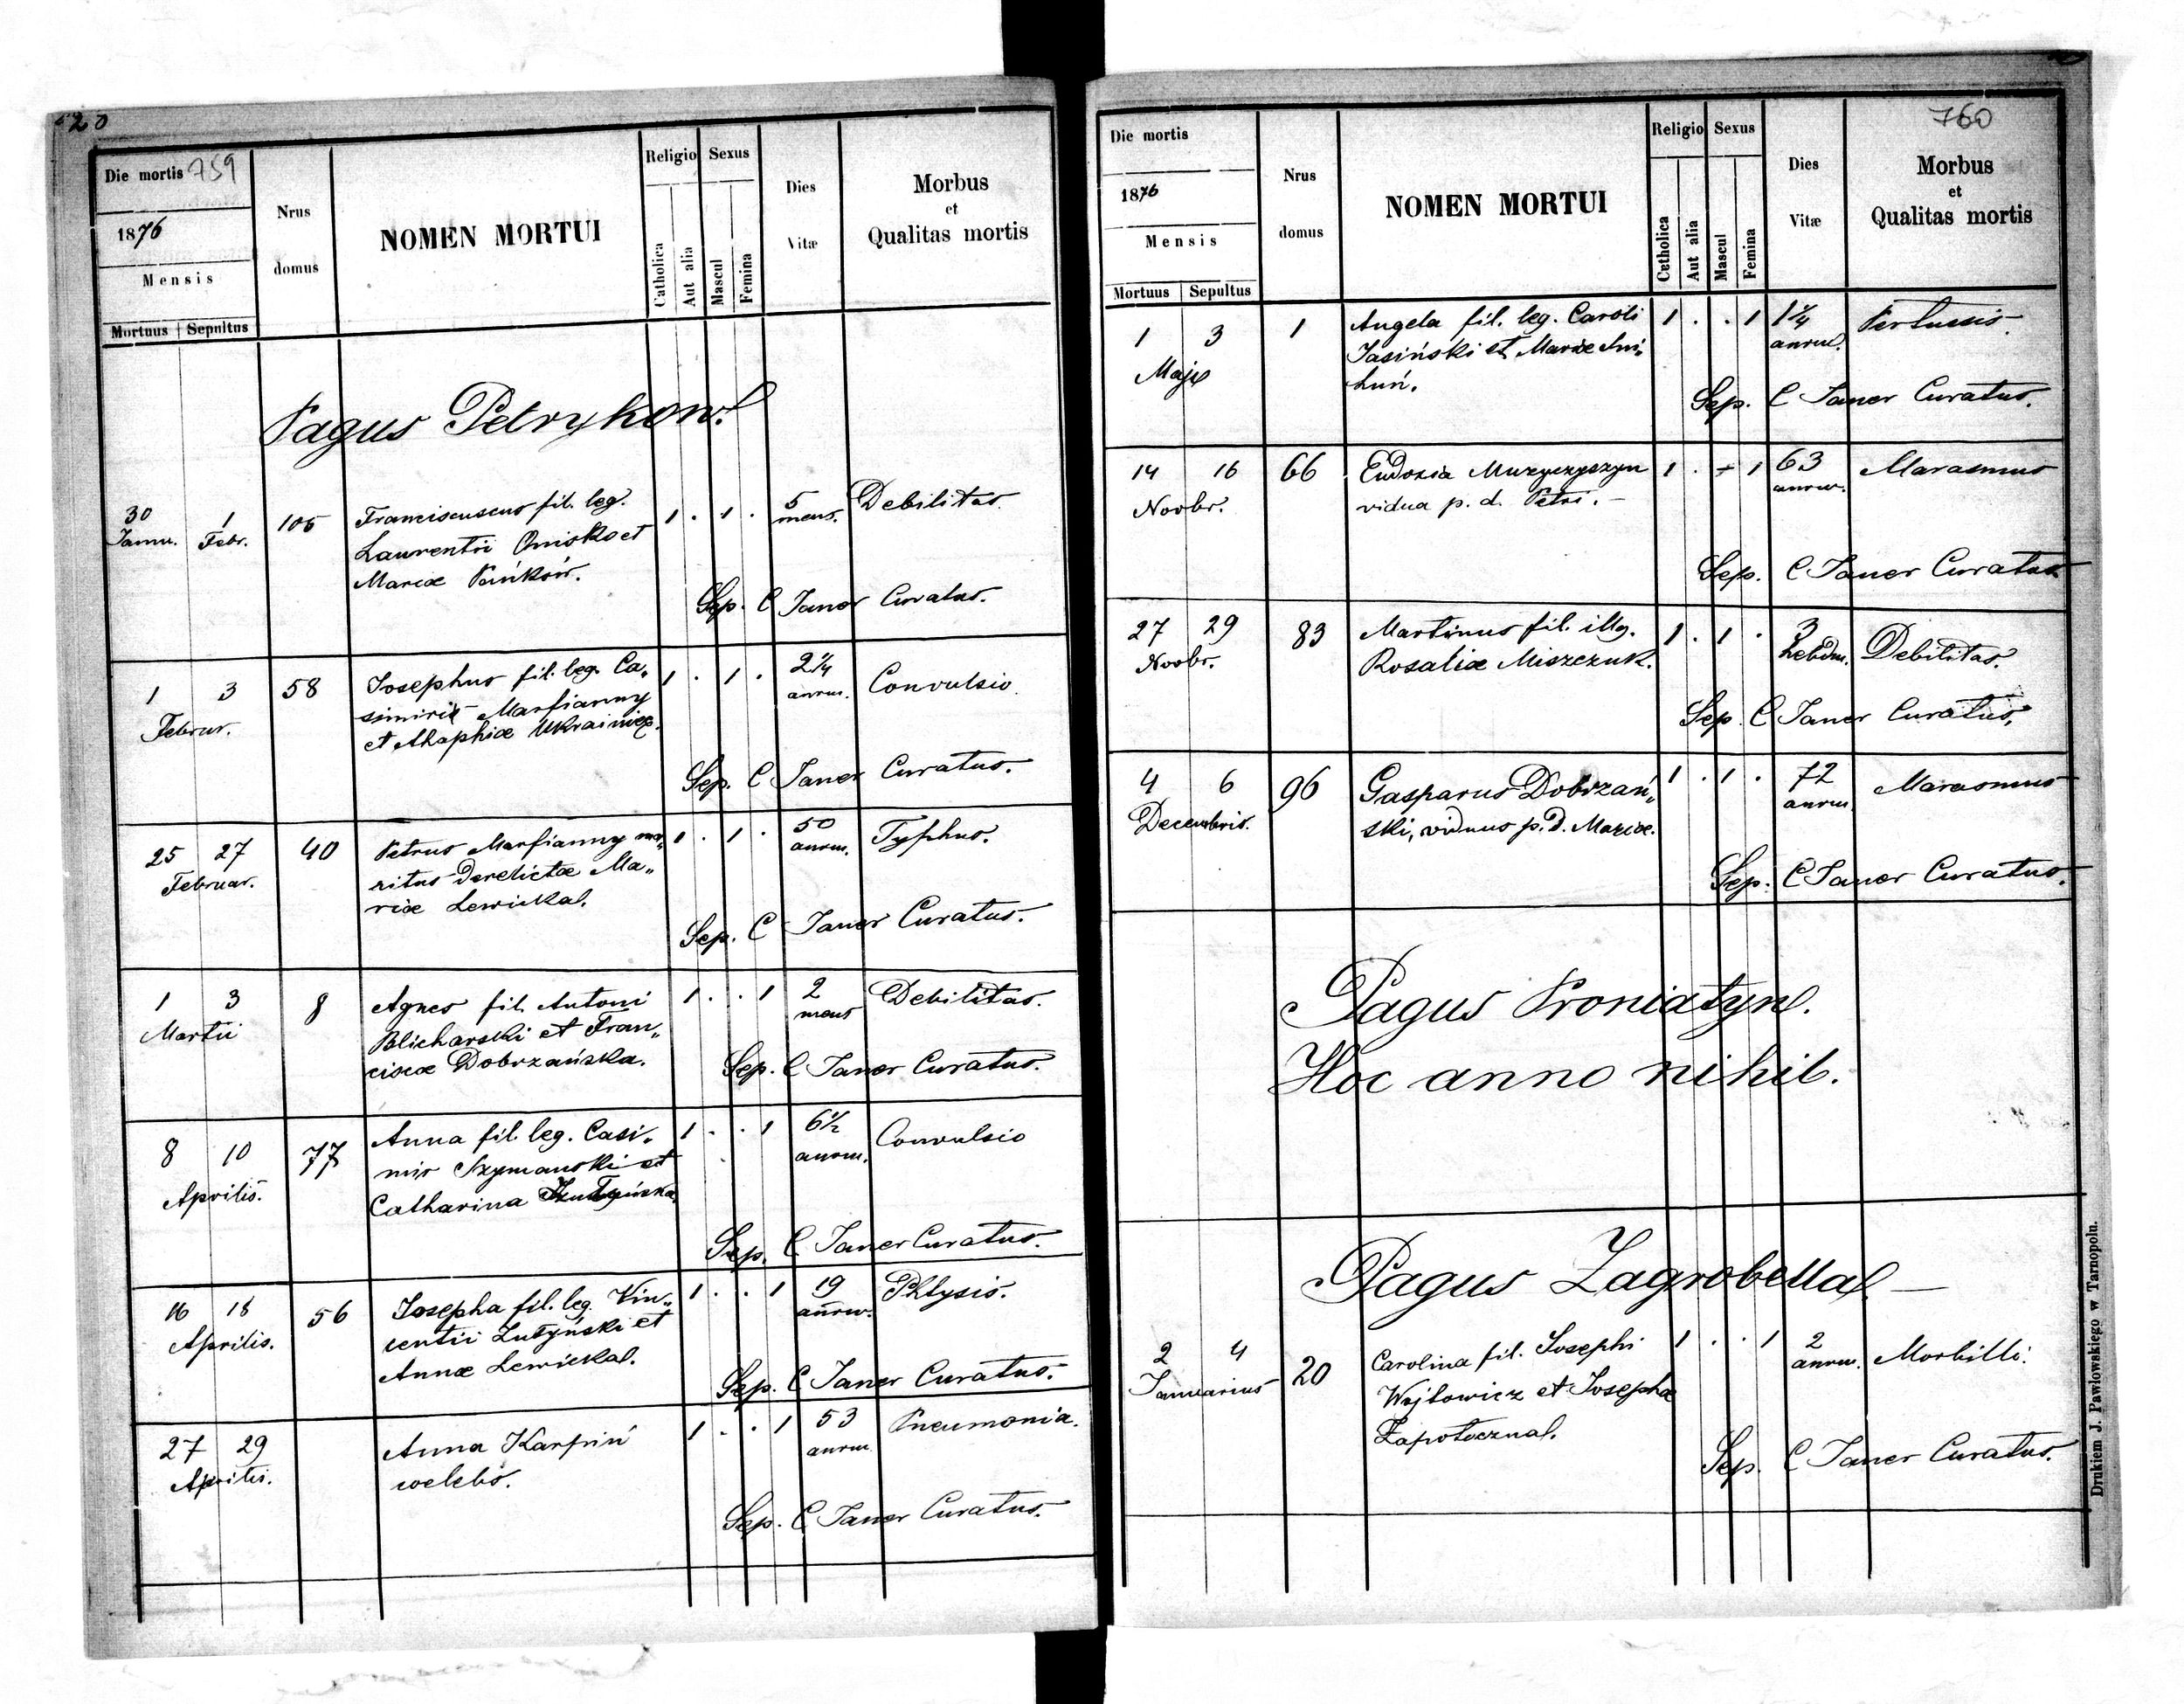 20
Die mortis 759
1876
Mensis
Mortuus | Sepultus
Nrus
domus
NOMEN MORTUI
Religio
Catholica
Aut alia
Sexus
Mascul
Femina
Dies
Vitæ
Morbus
et
Qualitas mortis
Pagus Petryków
30 1 105 Franciscuscus fil. leg. 1 . 1 . 5 Debilitas.
Janu. Febr. Laurentii Onisko et mens.
Mariæ Pańków.
Sep. C Janer Curatus.
1 3 58 Josephus fil. leg. Ca„ 1 . 1 . 2 1/4 Convulsio.
Februr. simiri Marfianny anrum.
et Ahaphiæ Ukrainiec.
Sep. C Janer Curatus.
25 27 40 Petrus Marfianny ma„ 1 . 1 . 50 Typhus.
Februar. ritus derelictæ Ma„ anrum.
riæ Lewicka.
Sep. C Janer Curatus.
1 3 8 Agnes fil. Antoni 1 . . 1 2 Debilitas.
Martii Blicharski et Fran„ mens
ciscæ Dobrzańska.
Sep. C Janer Curatus.
8 10 77 Anna fil. leg. Casi„ 1 . . 1 6 1/2 Convulsio
Aprilis. mir Szymanski et anrum.
Catharina
Sep. C Janer Curatus.
16 18 56 Josepha fil. leg. Vin„ 1 . . 1 19 Phtysis.
Aprilis. centii Lutyński et anrum.
Annæ Lewicka.
Sep. C Janer Curatus.
27 29 Anna Karpiń 1 . . 1 53 Pneumonia.
Aprilis. celebs. anrum
Sep. C Janer Curatus.
760
Die mortis
1876
Mensis
Mortuus | Sepultus
Nrus
domus
NOMEN MORTUI
Religio
Catholica
Aut alia
Sexus
Mascul
Femina
Dies
Vitæ
Morbus
et
Qualitas mortis
1 3 1 Angela fil. leg. Caroli 1 . . 1 1 1/4 Pertussis.
Maji Jasiński et Mariæ anrum.
Sep. C Janer Curatus.
14 16 66 Eudoxia Muzyczyszyn 1 . . 1 63 Marasmus
Novbr. vidua p. d. Petri. – anrum.
Sep. C Janer Curatus
27 29 83 Martinus fil. illg. 1 . 1 . 3 Debilitas.
Novbr. Rosaliæ Miszczuk. hebdm.
Sep. C Janer Curatus.
4 6 96 Gasparus Dobrzań„ 1 . 1 . 72 Marasmus
Decembris. ski, viduus p. d. Mariæ. anrum.
Sep. C Janer Curatus.
Pagus Proniatyn.
Hoc anno nihil.
Pagus Zagrobella –
2 4 20 Carolina fil. Josephi 1 . . 1 2 Morbilli.
Januarius Wojtowicz et Josepha anrum.
Zapotoczna.
Sep. C Janer Curatus.
Drukiem J. Pawlowskiego w Tarnopolu.